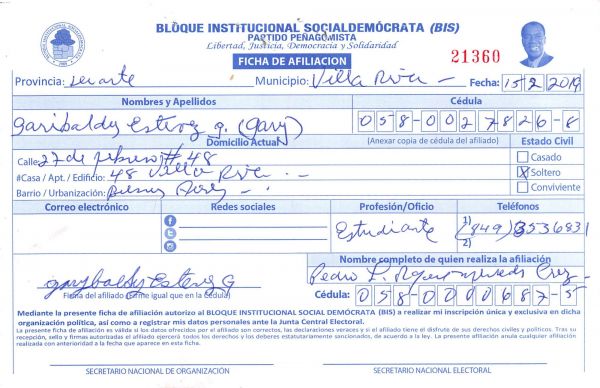 BLOQUE INSTITUCIONAL SOCIALDEMÓCRATA (BIS)
PARTIDO PEÑAGOMISTA
Libertad, Justicia, Democracia y Solidaridad
FICHA DE AFILIACION
21360
Provincia: Municipio: Villa Riva Fecha: 15/2/2019
Nombres y Apellidos Cédula
Garibaldy Estevez G. (Gary) 058-0027826-8
Domicilio Actual (Anexar copia de cédula del afiliado) Estado Civil
Calle: 27 de febrero # 48 Casado
#Casa / Apt. / Edificio: 48 Villa Riva X Soltero
Barrio / Urbanización: Buenos Aires Conviviente
Correo electrónico Redes sociales Profesión/Oficio Teléfonos
Estudiante 1) (849) 3536831
2)
Nombre completo de quien realiza la afiliación
garybaldy Estevez G Pedro
Ficha del afiliado (Firme igual que en la cédula) Cédula: 058-0000687-5
Mediante la presente ficha de afiliación autorizo al BLOQUE INSTITUCIONAL SOCIAL DEMÓCRATA (BIS) a realizar mi inscripción única y exclusiva en dicha
organización política, así como a registrar mis datos personales ante la Junta Central Electoral.
La presente ficha de afiliación da validez a los datos ofrecidos por el afiliado son correctos, las declaraciones veraces y si el afiliado tiene el disfrute de sus derechos civiles y políticos. Tras su
recepción, sello y firmas autorizadas el afiliado ejercerá todos los derechos y los deberes estatutariamente sancionados, de acuerdo a la ley. La presente afiliación anula cualquier afiliación
realizada con anterioridad a la fecha que aparece en esta ficha.
SECRETARIO NACIONAL DE ORGANIZACIÓN SECRETARIO NACIONAL ELECTORAL